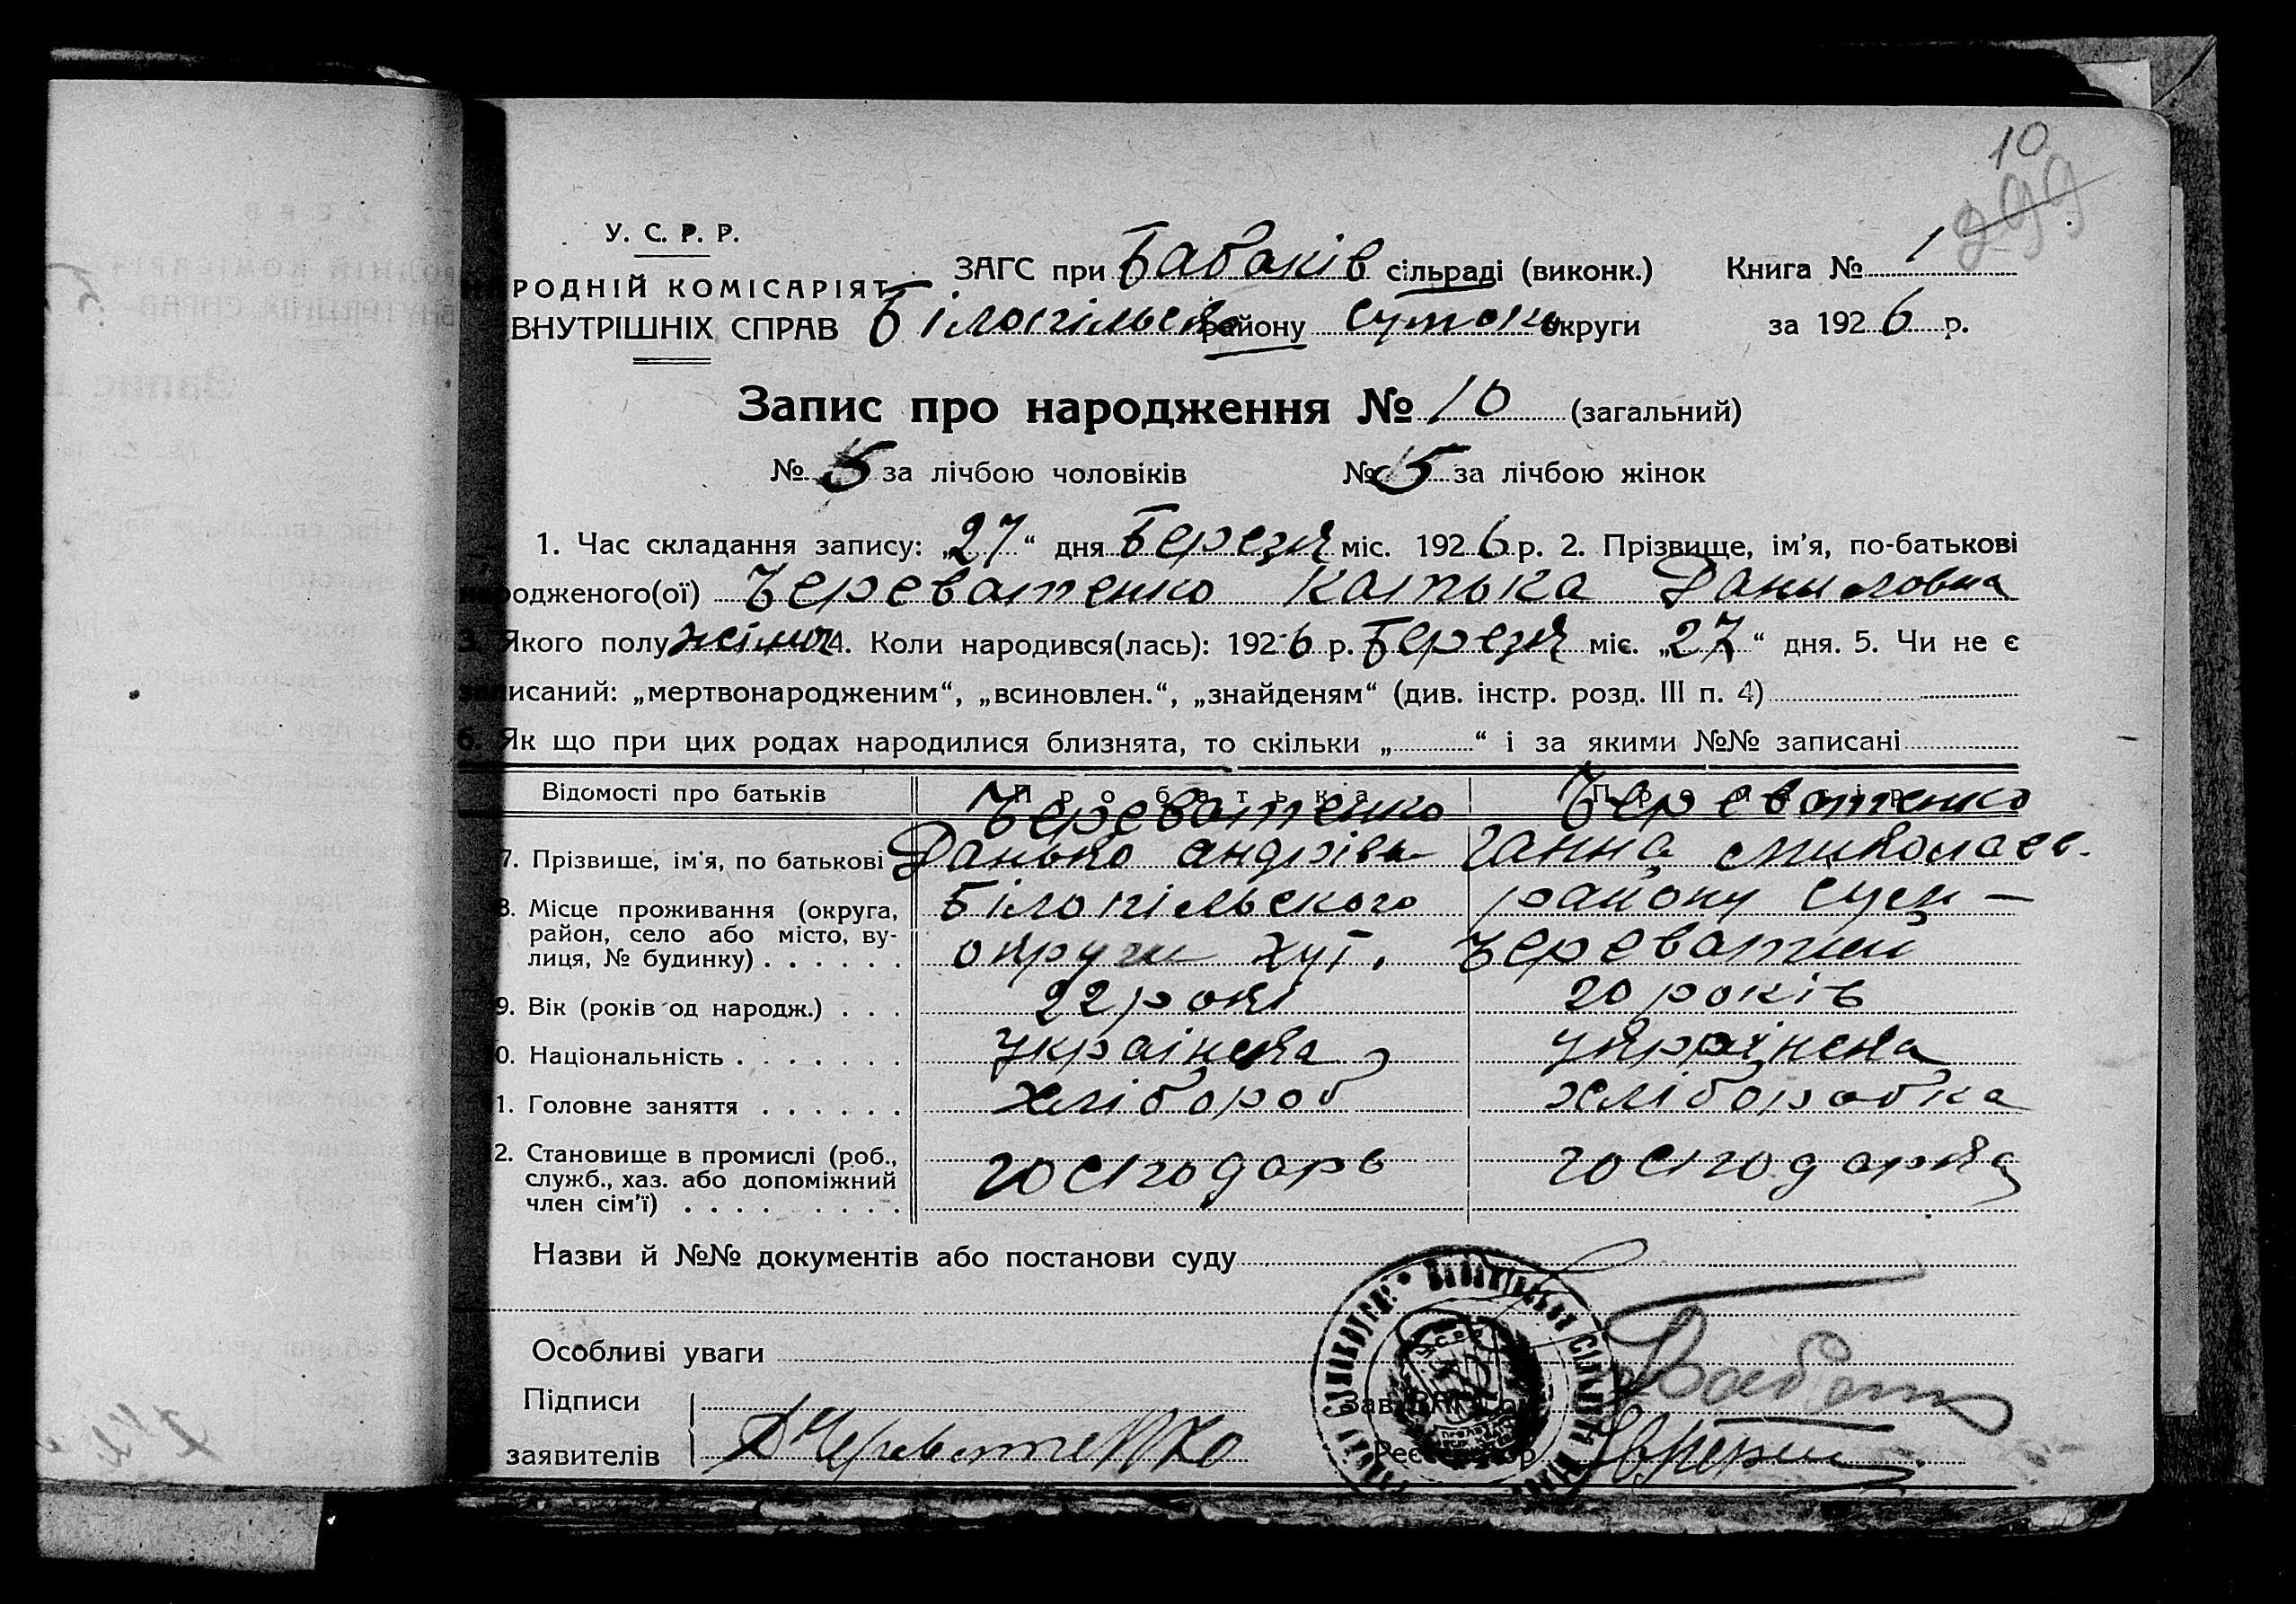 10
299
У. С. Р. Р.
НАРОДНІЙ КОМІСАРІЯТ
ВНУТРІШНІХ СПРАВ
ЗАГС при Бабаків сільраді (виконк.) Книга № 1
Білопільськ району Сумськ округи за 1926 р.
Запис про народження № 10 (загальний)
№ за лічбою чоловіків № 5 за лічбою жінок
1. Час складання запису: „27“ дня Березня міс. 1926 р. 2. Прізвище, ім'я, по-батькові
народженого(ої) Череватенко Катька Даниловна
3. Якого полу жіноч 4. Коли народився(лась): 1926 р. Березня міс. „27“ дня. 5. Чи не є
записаний: „мертвонародженим“, „всиновлен.“, „знайденям“ (див. інстр. розд. III п. 4)
6. Як що при цих родах народилися близнята, то скільки „ “ і за якими №№ записані
Відомості про батьків Про батька Про матір
Череватенко Череватенко
7. Прізвище, ім'я, по батькові Данько Андрієв Ганна Миколаєв.
8. Місце проживання (округа, Білопільского району Сум –
район, село або місто, ву-
лиця, № будинку) . . . . . . округи хут. Череватий
9. Вік (років од народж.) . . . 22 рокі 20 років
0. Національність . . . . . . . українська українська
1. Головне заняття . . . . . . хлібороб хліборобка
2. Становище в промислі (роб., господарь господарка
служб., хаз. або допоміжний
член сім'ї) . . . . . . . . .
Назви й №№ документів або постанови суду
Особливі уваги
Підписи
заявителів ДЧереватенко
Зав. ЗАГС'ом
Реєстратор